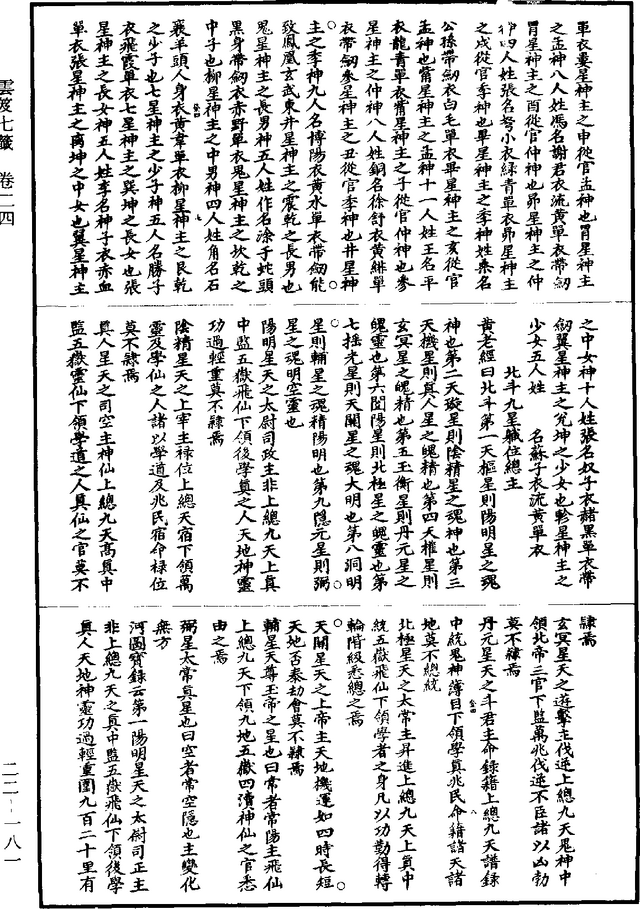 單衣婁星神主之申從官孟神也胃星神主
之孟神八人姓馮名謝君衣流黃單衣帶劒
胃星神主之酉從官仲神也昴星神主之仲
神四人姓張名弩小衣綠青單衣昴星神主
之戍從官季神也畢星神主之季神姓桑名
公孫帶劒衣白毛單衣畢星神主之亥從官
孟神也觜星神主之孟神十一人姓王名平
衣龍青單衣觜星神主之子從官仲神也參
星神主之仲神八人姓銅名徐舒衣黃緋單
衣帶劒參星神主之丑從官季神也井星神
主之季神九人名博陽衣黃水單衣帶劒能
致鳳凰玄武東井星神主之震乾之長男也
鬼星神主之長男神五人姓作名涂于蛇頭
黑身帶劒衣赤野單衣鬼星神主之坎乾之
中子也柳星神主之中男神四人姓角名石
襄羊頭人身衣黃韋單衣柳星神主之艮乾
之少子也七星神主之少子神五人名勝子
衣飛霞單衣七星神主之巽坤之長女也張
星神主之長女神五人姓李名神子衣赤血
單衣張星神主之离坤之中女也翼星神主
之中女神十人姓張名奴子衣赭黑單衣帶
劒翼星神主之兊坤之少女也軫星神主之
少女五人姓　名蘇子衣流黃單衣
北斗九星職位總主
黃老經曰北斗第一天樞星則陽明星之魂
神也第二天璇星則陰精星之魂神也第三
天機星則真人星之魄精也第四天權星則
玄冥星之魄精也第五玉衡星則丹元星之
魄靈也第六闓陽星則北極星之魄靈也第
七搖光星則天關星之魂大明也第八洞明
星則輔星之魂精陽明也第九隱元星則弼
星之魂明空靈也
陽明星天之太尉司政主非上總九天上真
中監五嶽飛仙下領後學真之人天地神靈
功過輕重莫不隸焉
陰精星天之上宰主祿位上總天宿下領萬
靈及學仙之人諸以學道及兆民宿命祿位
莫不隸焉
真人星天之司空主神仙上總九天高真中
監五嶽靈仙下領學道之人真仙之官莫不
隸焉
玄冥星天之遊擊主伐逆上總九天鬼神中
領北帝三官下監萬兆伐逆不臣諸以凶勃
莫不隸焉
丹元星天之斗君主命錄籍上總九天譜錄
中統鬼神簿目下領學真兆民命籍諸天諸
地莫不總統
北極星天之太常主昇進上總九天上真中
統五嶽飛仙下領學者之身凡以功勤得轉
輪階級悉總之焉
天關星天之上帝主天地機運如四時長短
天地否泰劫會莫不隸焉
輔星天尊玉帝之星也曰常者常陽主飛仙
上總九天下領九地五嶽四瀆神仙之官悉
由之焉
弼星太常真星也曰空者常空隱也主變化
無方
河圖寶錄云第一陽明星天之太尉司正主
非上總九天之真中監五嶽飛仙下領後學
真人天地神靈功過輕重圍九百二十里有
雲笈七籤　卷二四
二二－一八一